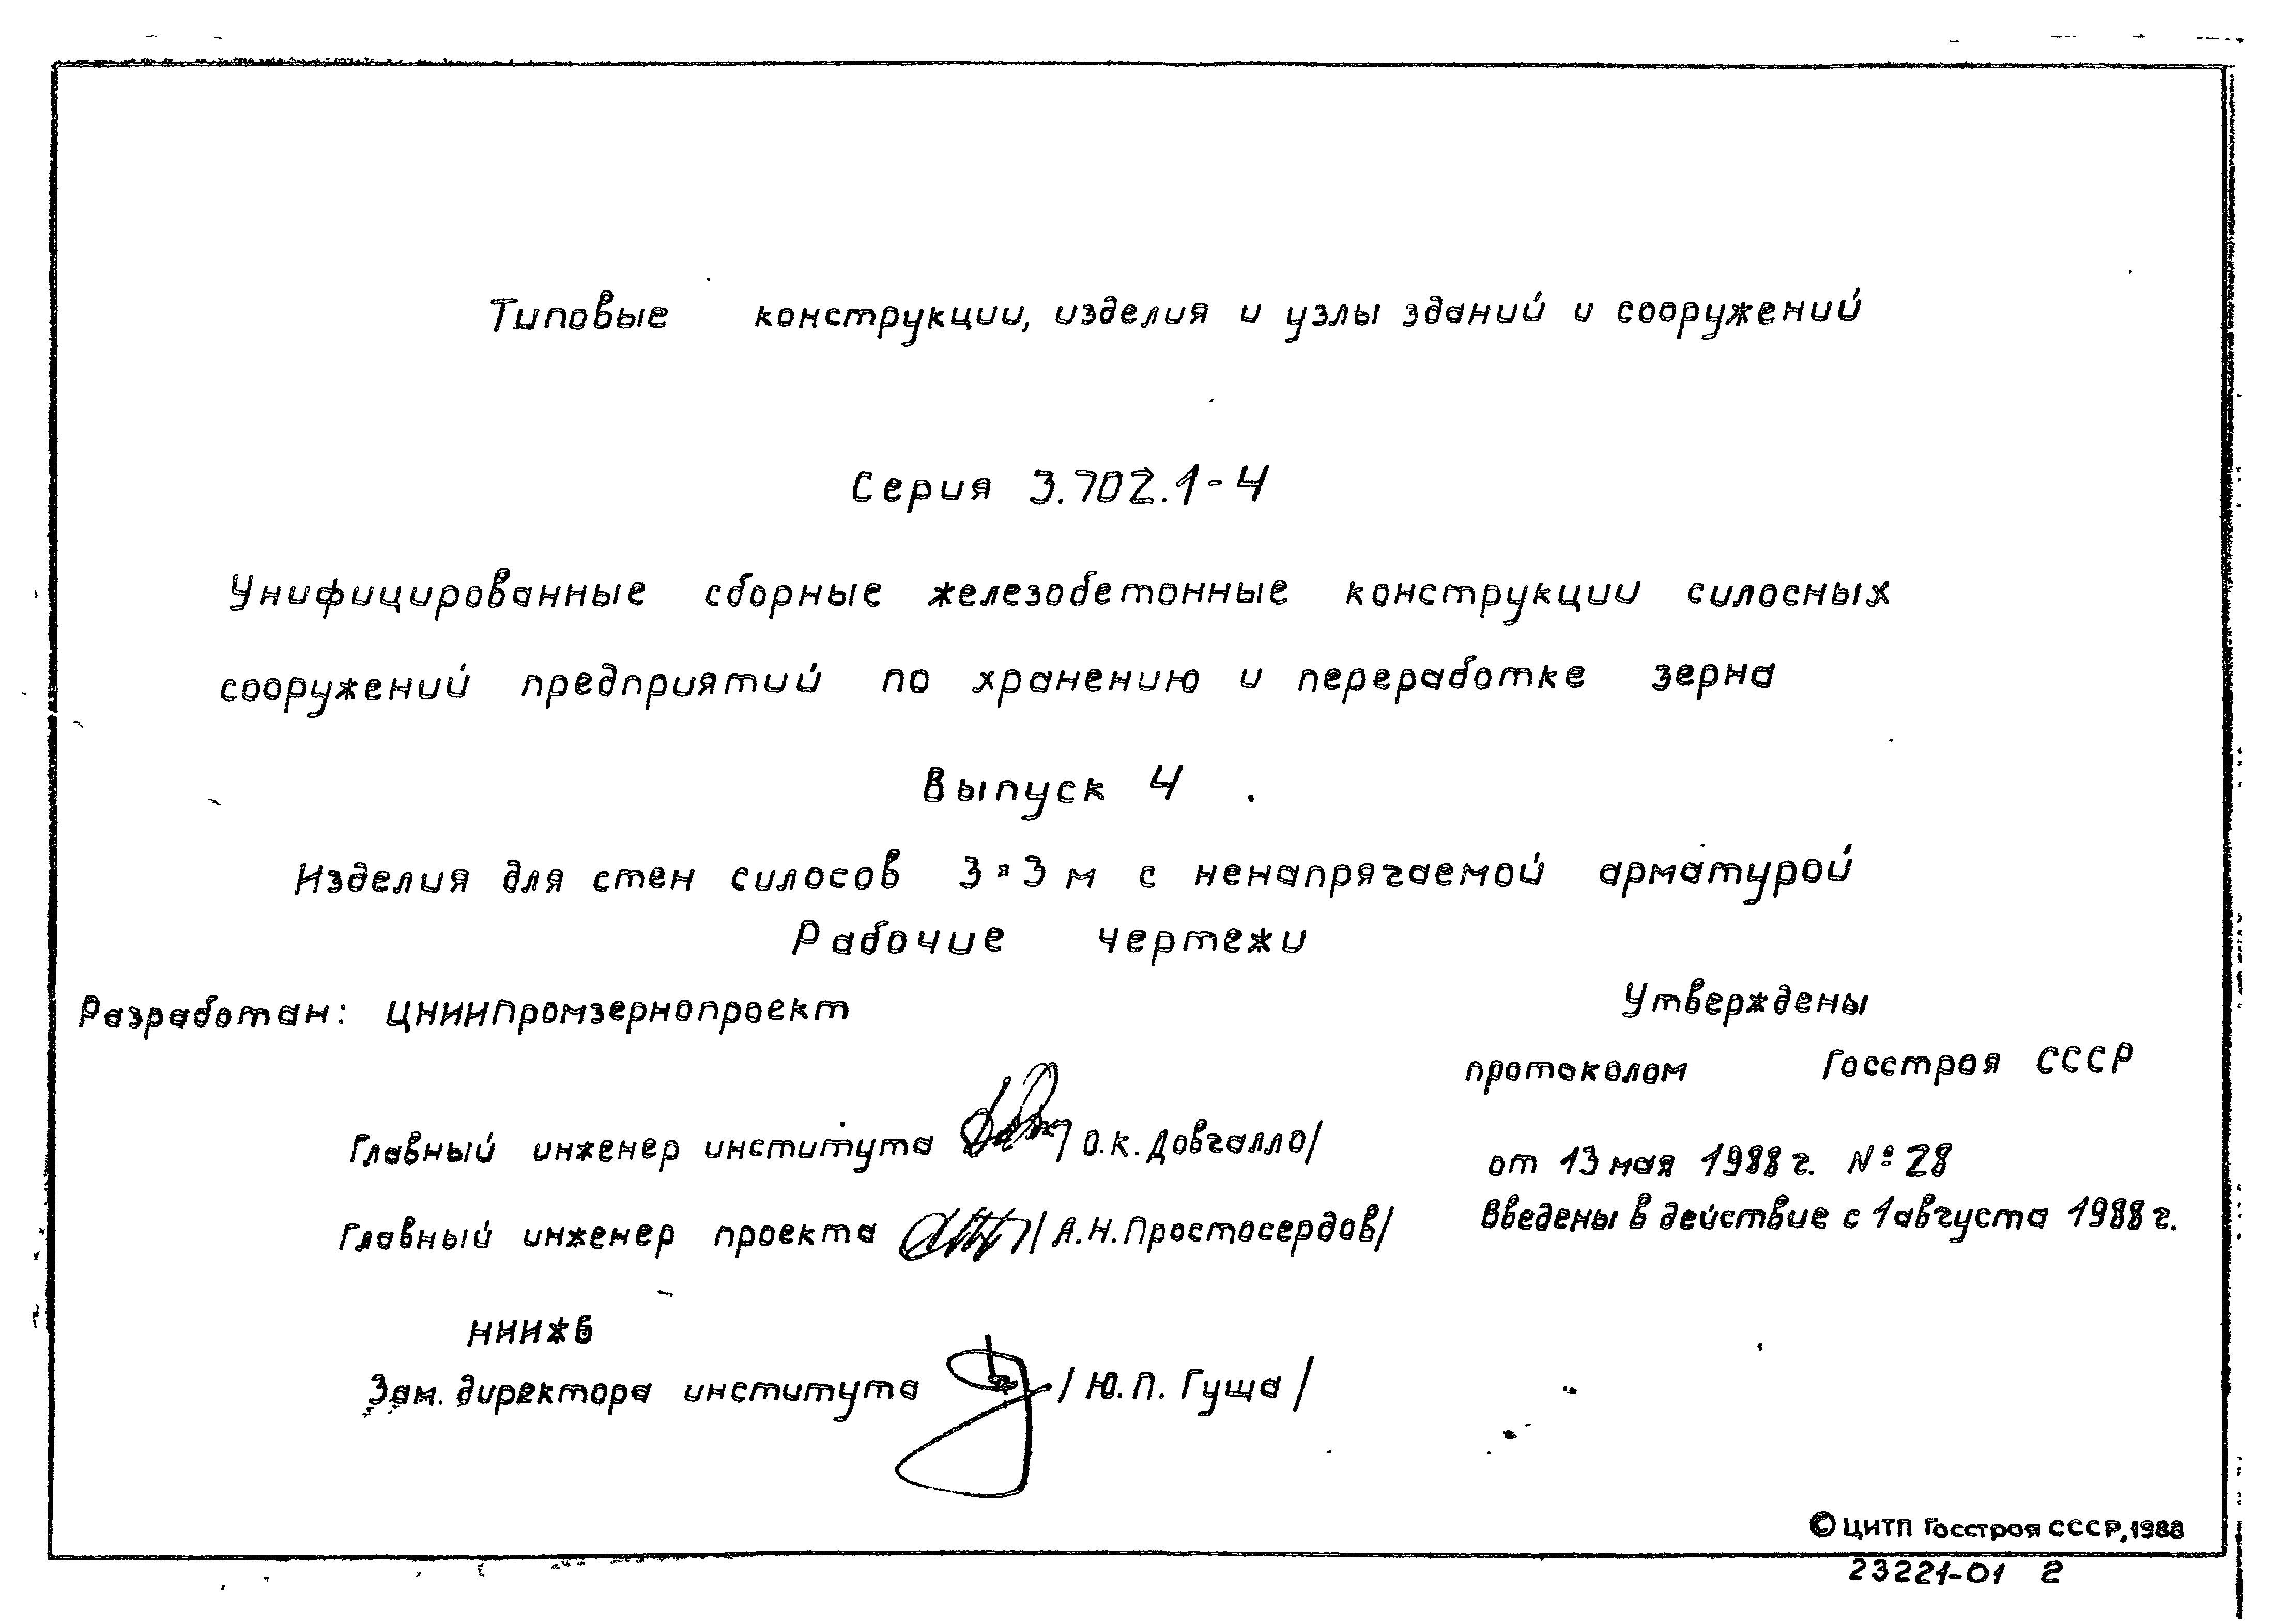 Типовые конструкции, изделия и узлы зданий и сооружений
Серия 3.702.1-4
Унифицированные сборные железобетонные конструкции силосных
сооружений предприятий по хранению и переработке зерна
Выпуск 4
Изделия для стен силосов 3×3 м с ненапрягаемой арматурой
Рабочие чертежи
Разработан: ЦНИИПромзернопроект
Главный инженер института /О.К. Довгалло/
Главный инженер проекта /А.Н. Простосердов/
НИИЖБ
Зам. директора института /Ю.П. Гуща/
Утверждены
протоколом Госстроя СССР
от 13 мая 1988 г. № 28
Введены в действие с 1 августа 1988 г.
© ЦИТП Госстроя СССР, 1988
23221-01 2